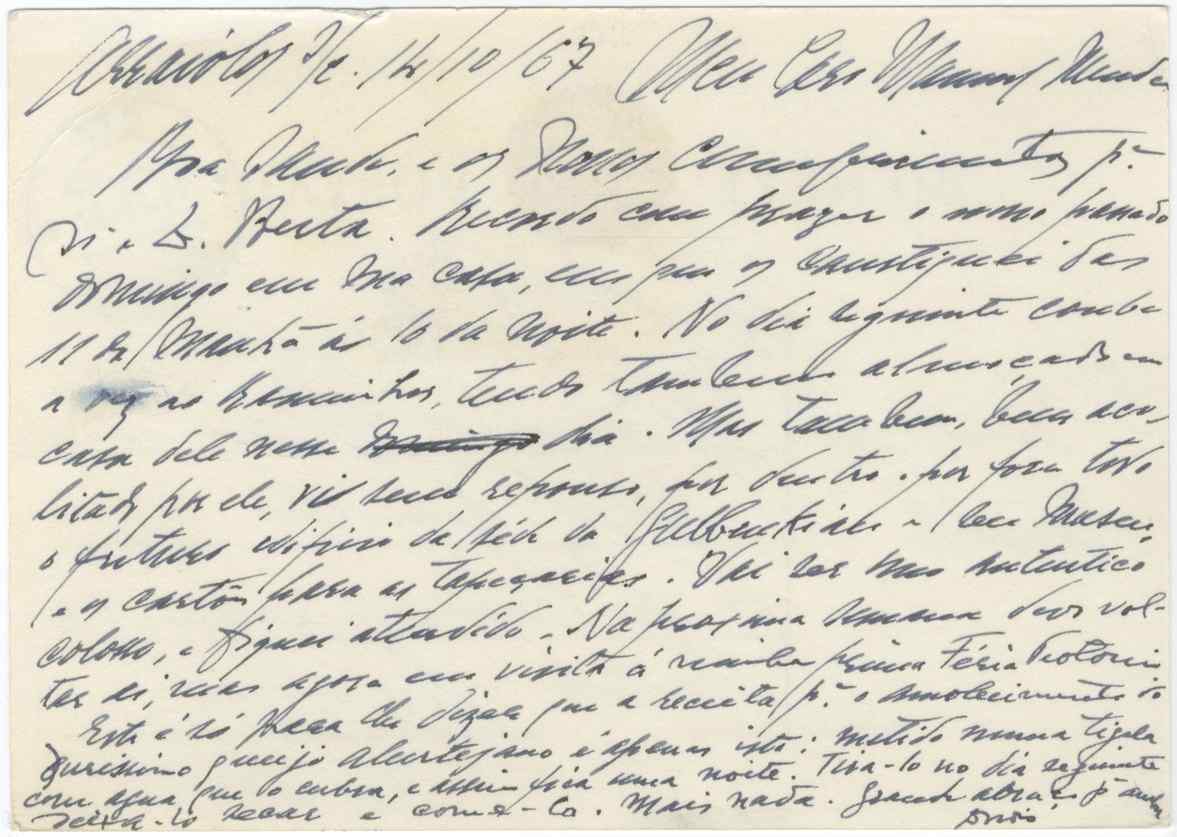 Arraiolos 14/10/67 Meu Caro Manuel Mendes
Boa Saude, e os nossos cumprimentos pª
si e D. Berta. Recordo com prazer o nosso passado
domingo em sua casa, em que os castiguei das
11 da manhã ás 10 da noite. No dia seguinte coube
a vez ao Raminhos, tendo tambem almoçado em
casa dele nesse dia. Mas tambem, bem aco-
litado por ele, vi sem repouso, por dentro e por fora todo
o futuro edificio da séde da Gulbenkian e seu Museu,
e os cartões para as tapeçarias. Vai ser um autentico
colosso, e fiquei aturdido. Na proxima semana devo vol-
tar ai, mas agora em visita á minha prima
Este é só para lhe dizer que a receita pª o amolecimento do
durissimo queijo alentejano é apenas isto: metido numa tigela
com agua, que o cubra, e assim fica uma noite. Tira-lo no dia seguinte
deixa-lo secar e come-lo. Mais nada. Grande abraço pª ambos